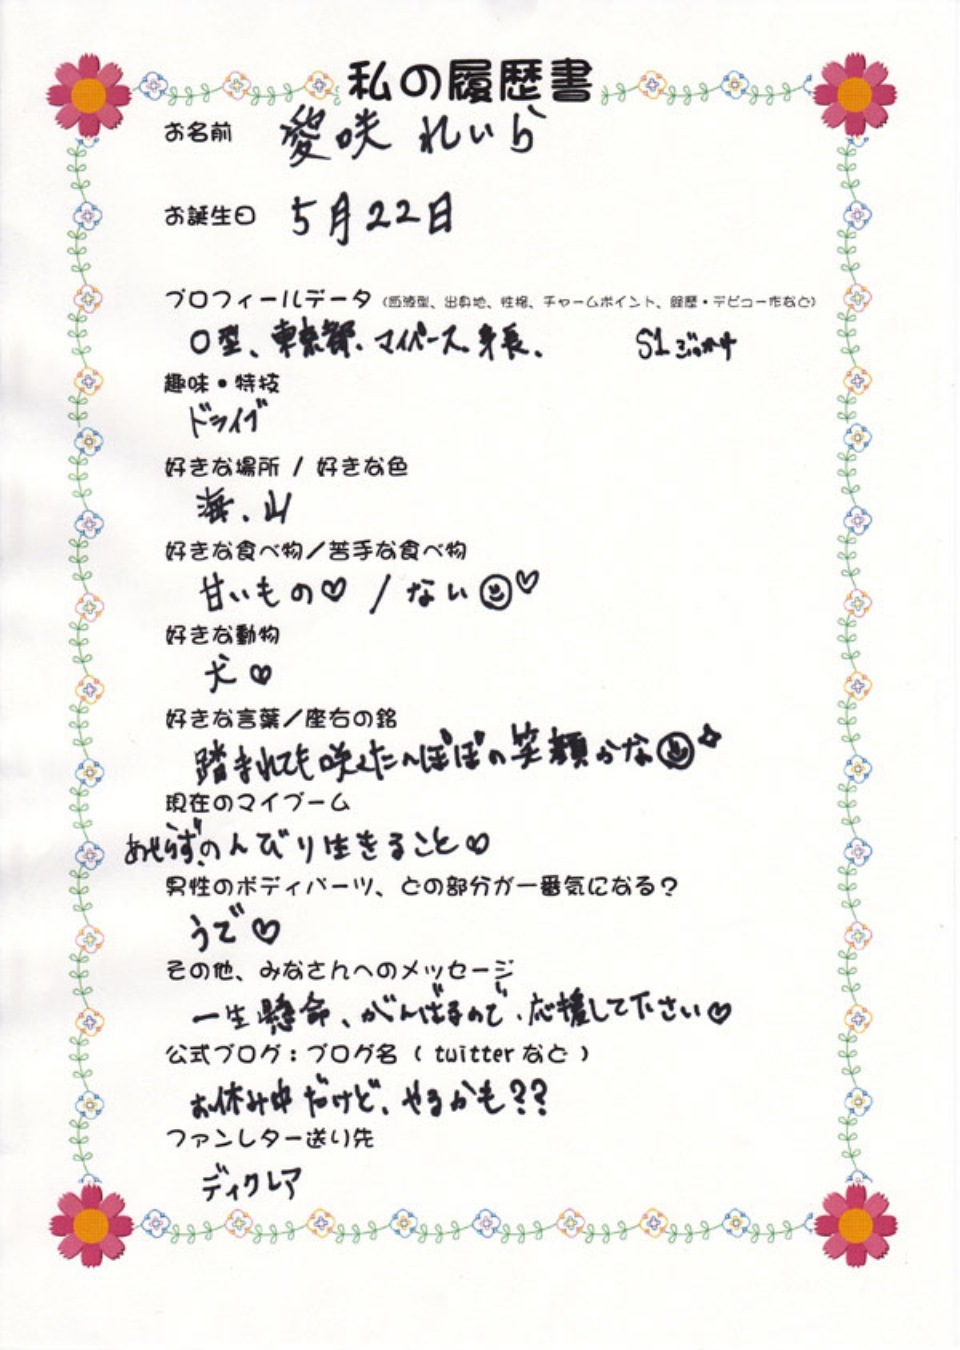 私の履歴書
お名前 愛咲 れいら
お誕生日 5月22日
プロフィールデータ (血液型、出身地、性格、チャームポイント、経歴・デビュー作など)
O型、東京都、マイペース。身長、 S1
趣味・特技
ドライブ
好きな場所 / 好きな色
海、山
好きな食べ物/苦手な食べ物
甘いもの♡ / ない☺♡
好きな動物
犬♡
好きな言葉/座右の銘
踏まれても咲くたんぽぽの笑顔かな☺☆
現在のマイブーム
あせらず、のんびり生きること♡
男性のボディパーツ、どの部分が一番気になる?
うで♡
その他、みなさんへのメッセージ
一生懸命、がんばるので、応援して下さい♡
公式ブログ:ブログ名 ( twitter など )
お休み中だけど、やるかも??
ファンレター送り先
ディクレア